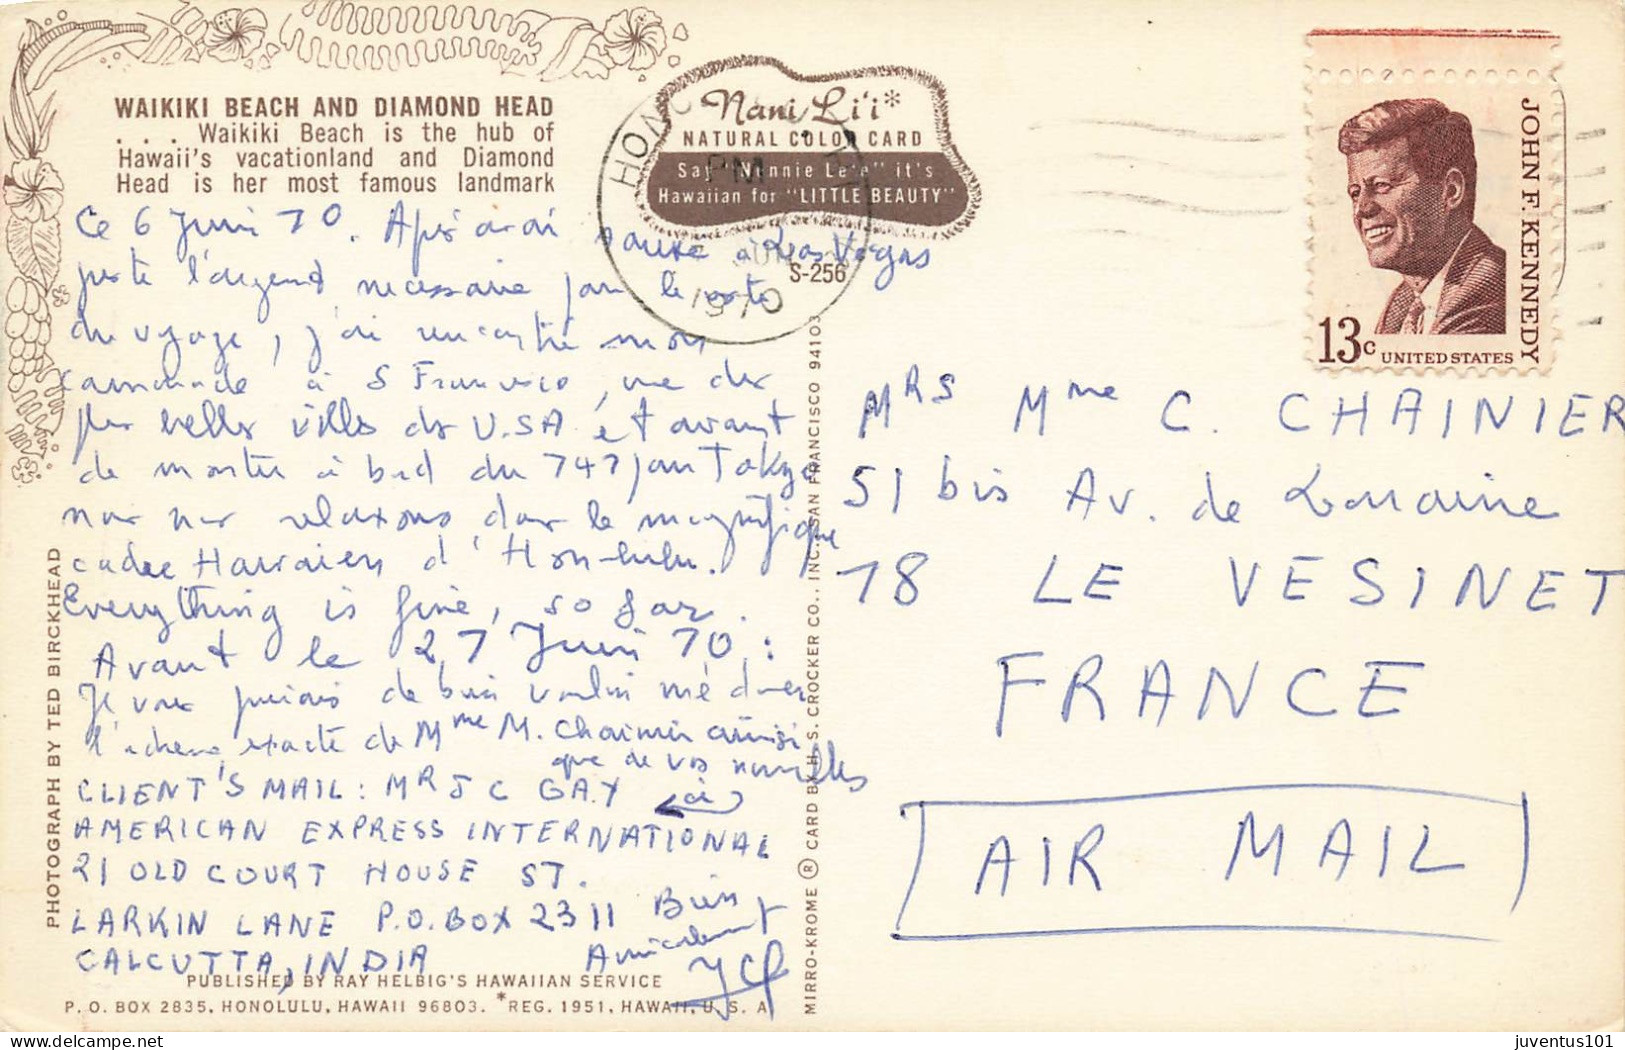 WAIKIKI BEACH AND DIAMOND HEAD
. . . . Waikiki Beach is the hub of
Hawaii's vacationland and Diamond
Head is her most famous landmark
Nani Li'i*
NATURAL COLOR CARD
Say "Nannie Le'e" it's
Hawaiian for "LITTLE BEAUTY"
S-256
PM
JUN
1970
JOHN F. KENNEDY
13c UNITED STATES
Ce 6 Juin 70. Après avoir
à Las Vegas
juste l'argent nécessaire pour le reste
du voyage, j'ai rencontré mon
camarade à S Francisco, une des
plus belles villes des U.SA, et avant
de monter à bord du 747 pour Tokyo
nous nous relaxons dans le magnifique
cadre Hawaien d'Honolulu.
Everything is fine, so far.
Avant le 27 Juin 70 :
Je vous prierais de bien vouloir me donner
l'adresse exacte de Mme M. Chainier ainsi
que de vos nouvelles
CLIENT'S MAIL: MR J C GAY à
AMERICAN EXPRESS INTERNATIONAL
21 OLD COURT HOUSE ST.
LARKIN LANE P.O. BOX 2311
CALCUTTA, INDIA
Bien
Amicalement
PUBLISHED BY RAY HELBIG'S HAWAIIAN SERVICE
P.O. BOX 2835, HONOLULU, HAWAII 96803. *REG. 1951, HAWAII, U.S.A.
PHOTOGRAPH BY TED BIRCKHEAD
MIRRO-KROME ® CARD BY H. S. CROCKER CO., INC. SAN FRANCISCO 94103
MRS Mme C. CHAINIER
51 bis Av. de Lorraine
78 LE VESINET
FRANCE
AIR MAIL
juventus101